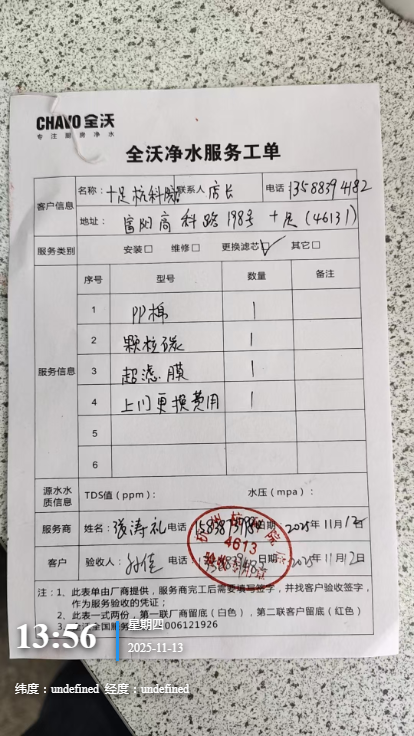 CHAVO 全沃
专注厨房净水
全沃净水服务工单
客户信息
名称：十足杭科院 联系人 店长 电话 13588394182
地址：富阳高科路198号十足(46131)
服务类别 安装□ 维修□ 更换滤芯☑ 其它□
服务信息
序号 型号 数量 备注
1 PP棉 1
2 颗粒碳 1
3 超滤膜 1
4 上门更换费用 1
5
6
源水水质信息 TDS值（ppm）： 水压（mpa）：
服务商 姓名： 涛礼 电话 日期：2025年11月12日
4613
客户 验收人： 电话 日期： 2025年11月12日
注：1、此表单由厂商提供，服务商完工后需要填写签字，并找客户验收签字，
作为服务验收的凭证；
2、此表一式两份，第一联厂商留底（白色），第二联客户留底（红色）
3 全国服务 006121926
13:56
星期四
2025-11-13
纬度：undefined 经度：undefined